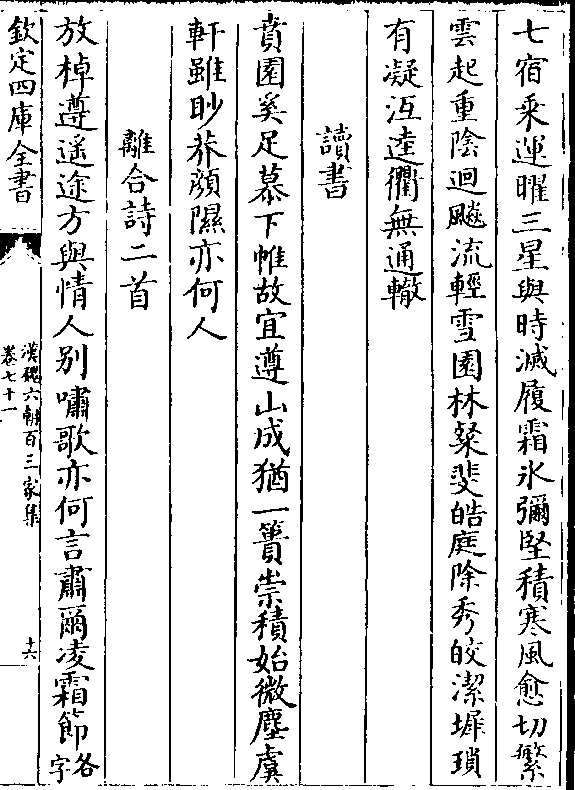 七宿乘運曜三星與時滅履霜氷彌堅積寒風愈切繁
雲起重陰迴飈流輕雪園林粲斐皓庭除秀皎潔墀瑣
有凝沍逵衢無通轍
讀書
賁園奚足慕下帷故宜遵山成猶一簣崇積始微塵虞
軒雖眇莽顔隰亦何人
離合詩二首
放棹遵遥途方與情人别嘯歌亦何言肅爾凌霜節各字
欽定四庫全書
漢魏六朝百三家集
卷七十一
十六